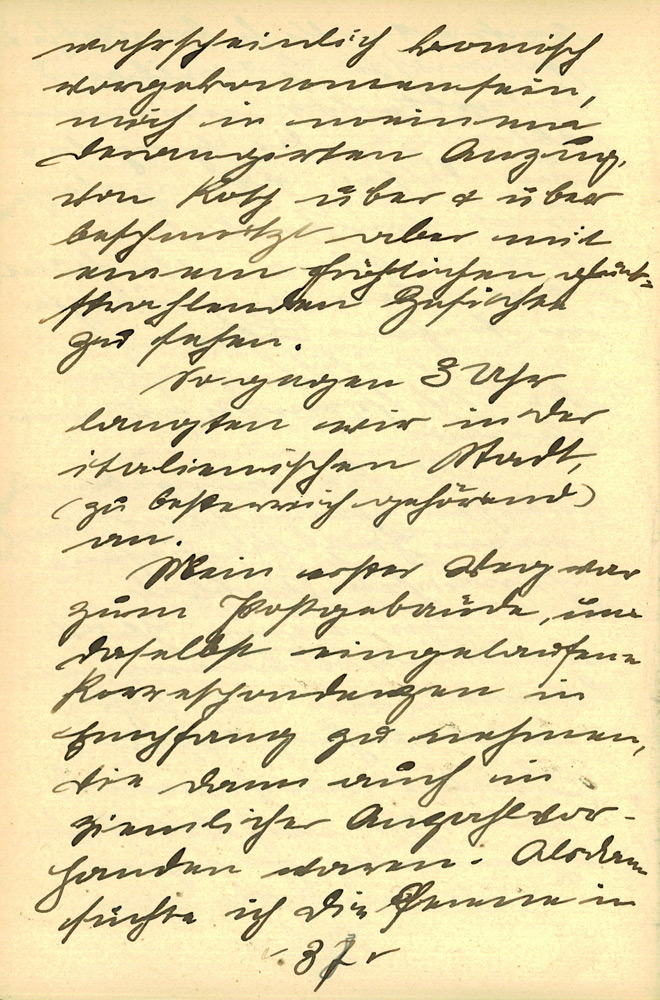 wahrscheinlich komisch
vorgekommen sein,
mich in meinem
derangirten Anzug,
von Koth über & über
beschmutzt aber mit
einem fröhlichen glück-
strahlenden Gesichte
zu sehen.
So gegen 3 Uhr
langten wir in der
italienischen Stadt,
(zu Oesterreich gehörend)
an.
Mein erster Weg war
zum Postgebäude, um
daselbst eingelaufene
Korrespondenzen in
Empfang zu nehmen,
die dann auch in
ziemlicher Anzahl vor-
handen waren. Alsdann
suchte ich die in
- 37 -